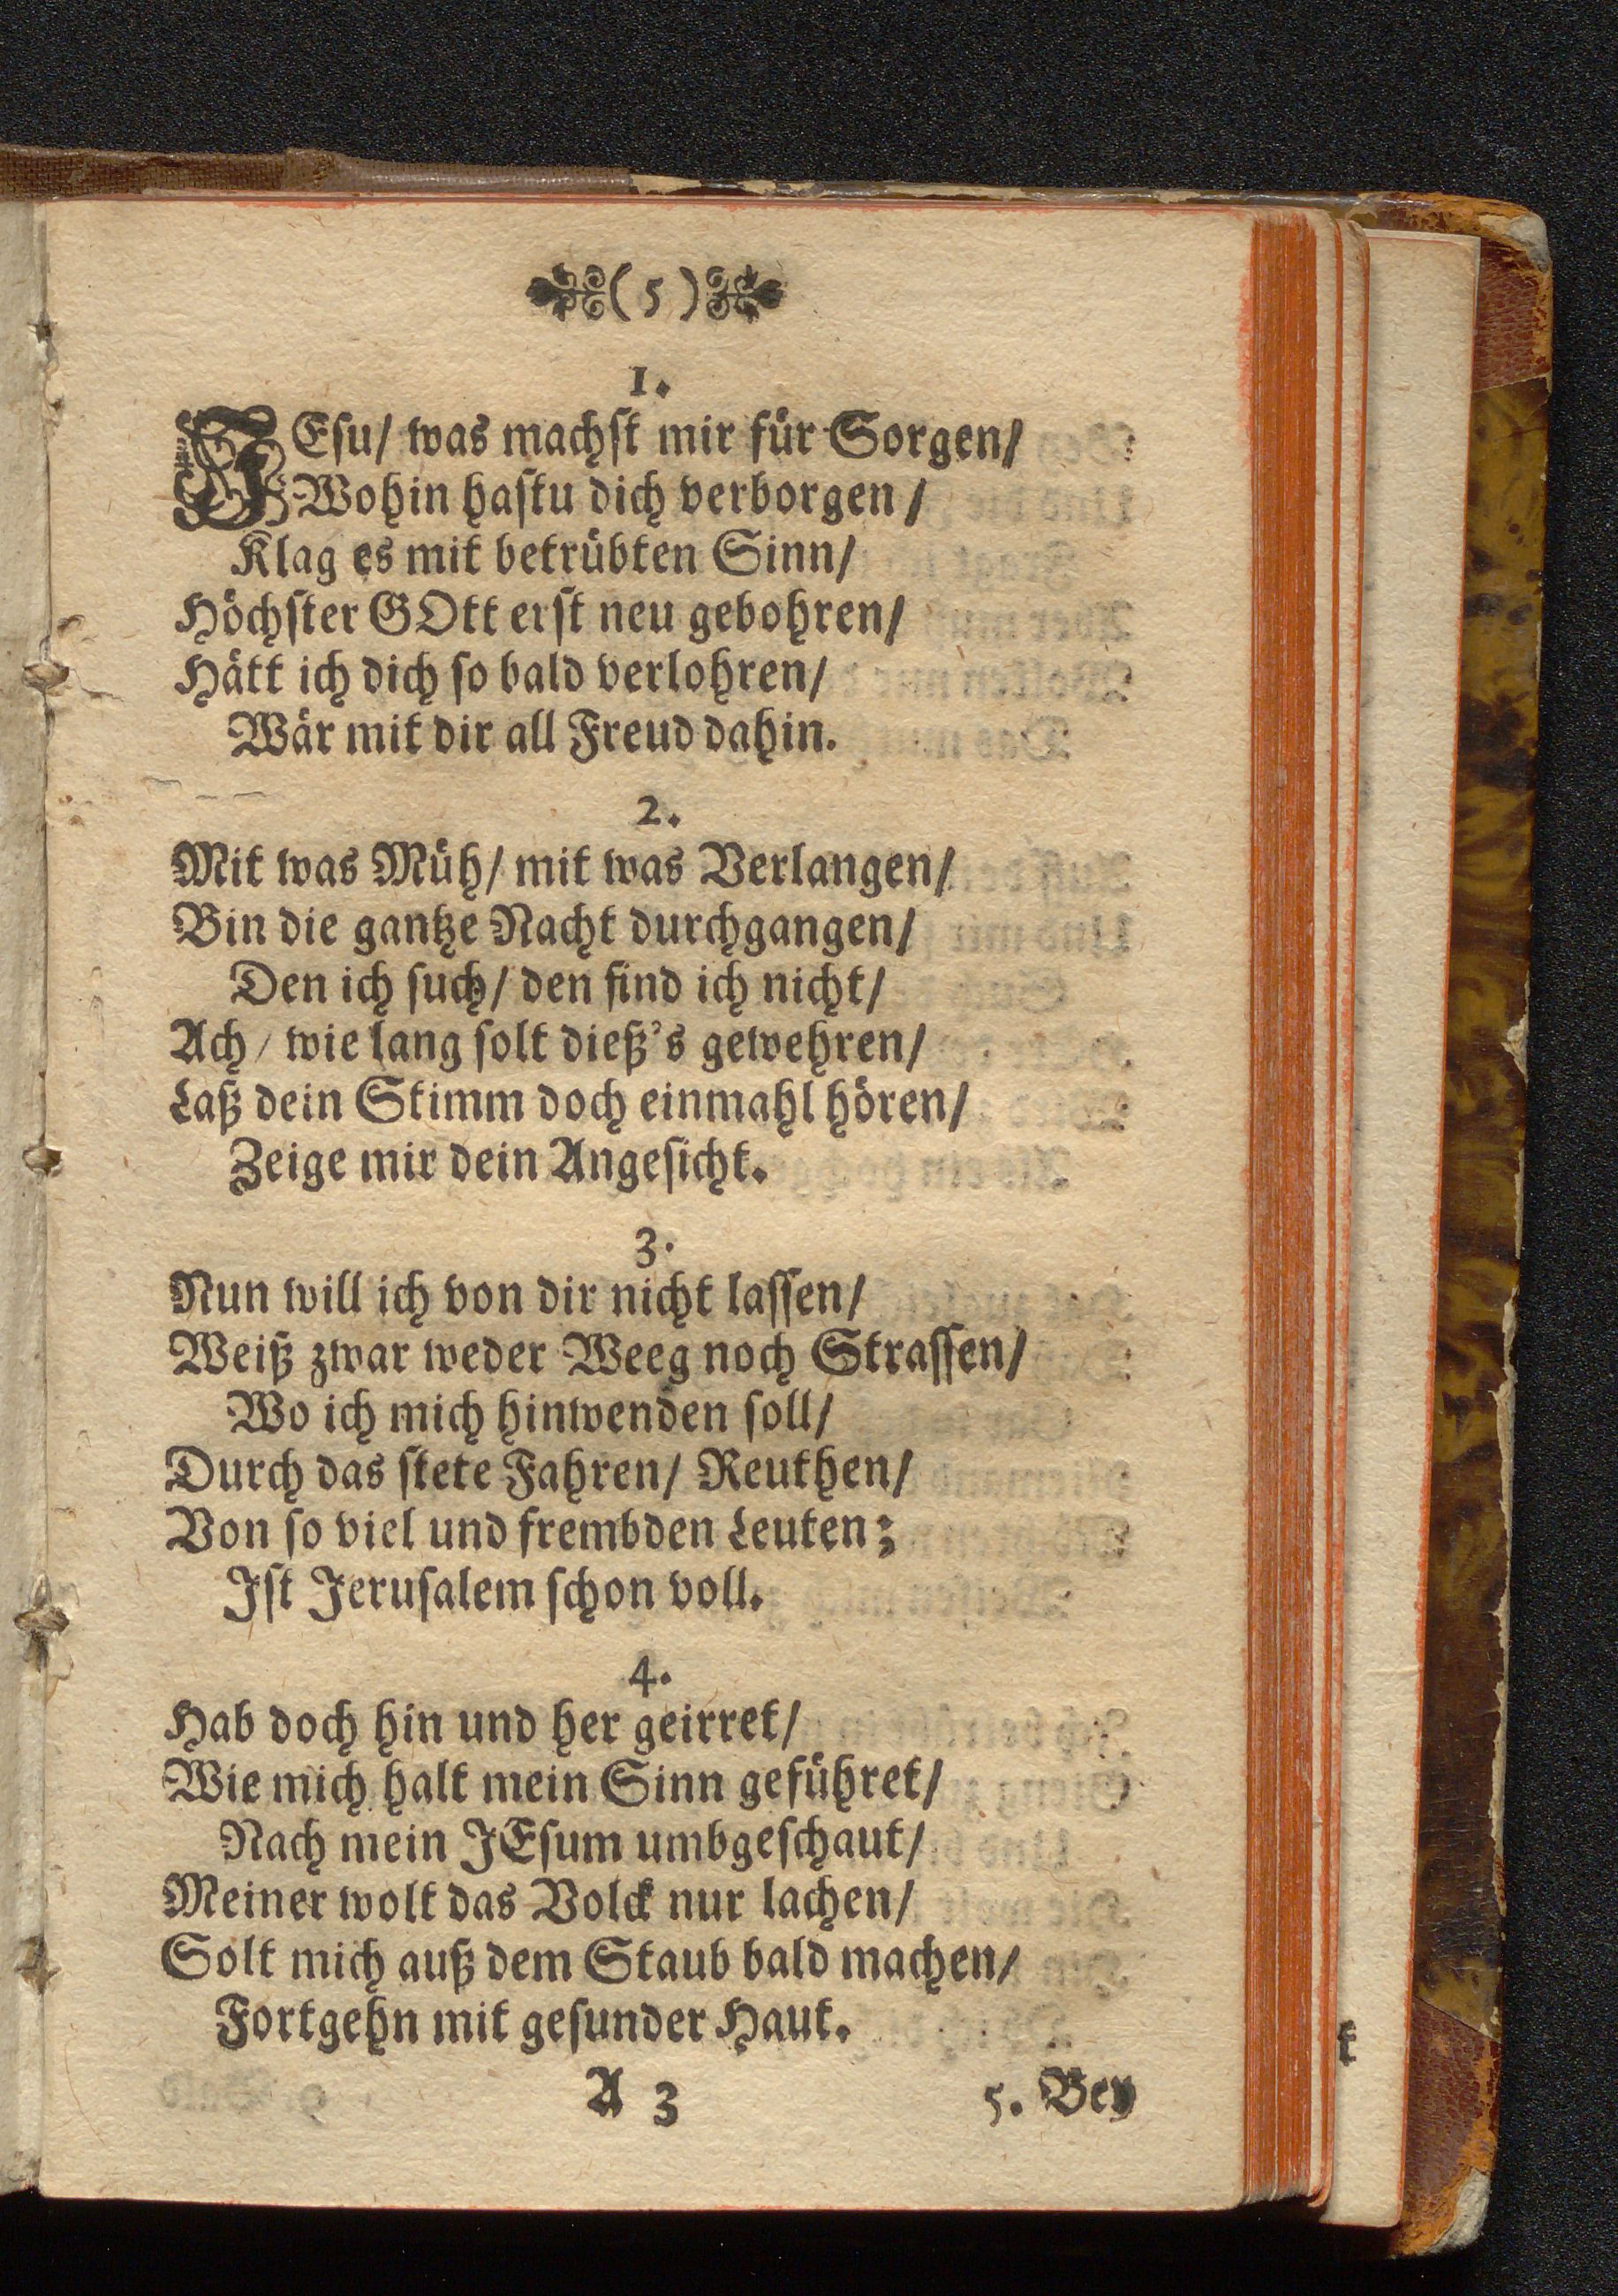 (5)
1.
JEsu/ was machst mir für Sorgen/
Wohin hastu dich verborgen/
Klag es mit betrübten Sinn/
Höchster GOtt erst neu gebohren/
Hätt ich dich so bald verlohren/
Wär mit dir all Freud dahin.
2.
Mit was Müh/ mit was Verlangen/
Bin die gantze Nacht durchgangen/
Den ich such/ den find ich nicht/
Ach/ wie lang solt dieß's gewehren/
Laß dein Stimm doch einmahl hören/
Zeige mir dein Angesicht.
3.
Nun will ich von dir nicht lassen/
Weiß zwar weder Weeg noch Strassen/
Wo ich mich hinwenden soll/
Durch das stete Fahren/ Reuthen/
Von so viel und frembden Leuten;
Ist Jerusalem schon voll.
4.
Hab doch hin und her geirret/
Wie mich halt mein Sinn geführet/
Nach mein JEsum umbgeschaut/
Meiner wolt das Volck nur lachen/
Solt mich auß dem Staub bald machen/
Fortgehn mit gesunder Haut.
A 3 5. Bey